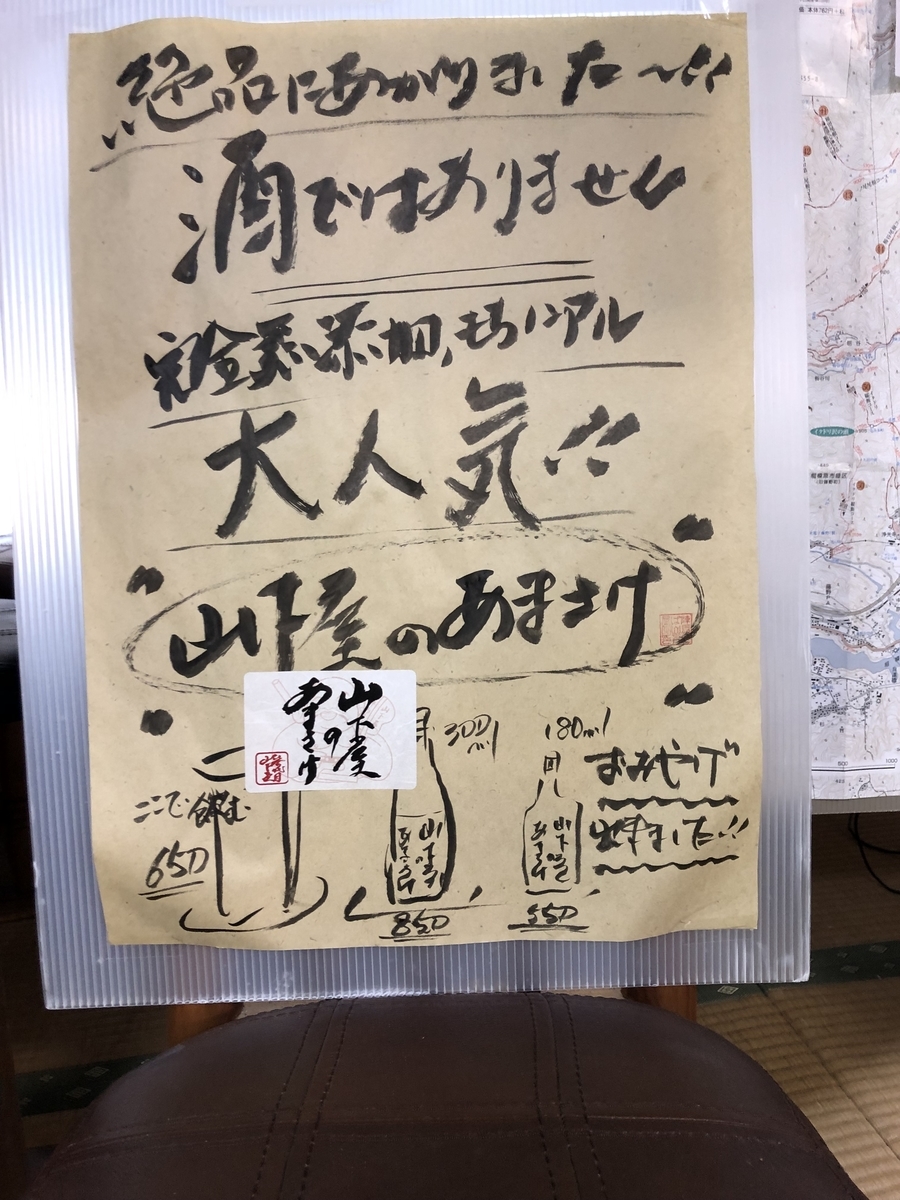 絶品にあがりました〜!!
酒ではありません
完全無添加、もろにアル
大人気!!
"山下屋のあまさけ"
山下屋
の
あまさけ
300ml
180ml
おみやげ
出来ました!!
ここで飲む
650
山下屋
あまさけ
850
山下屋
あまさけ
550